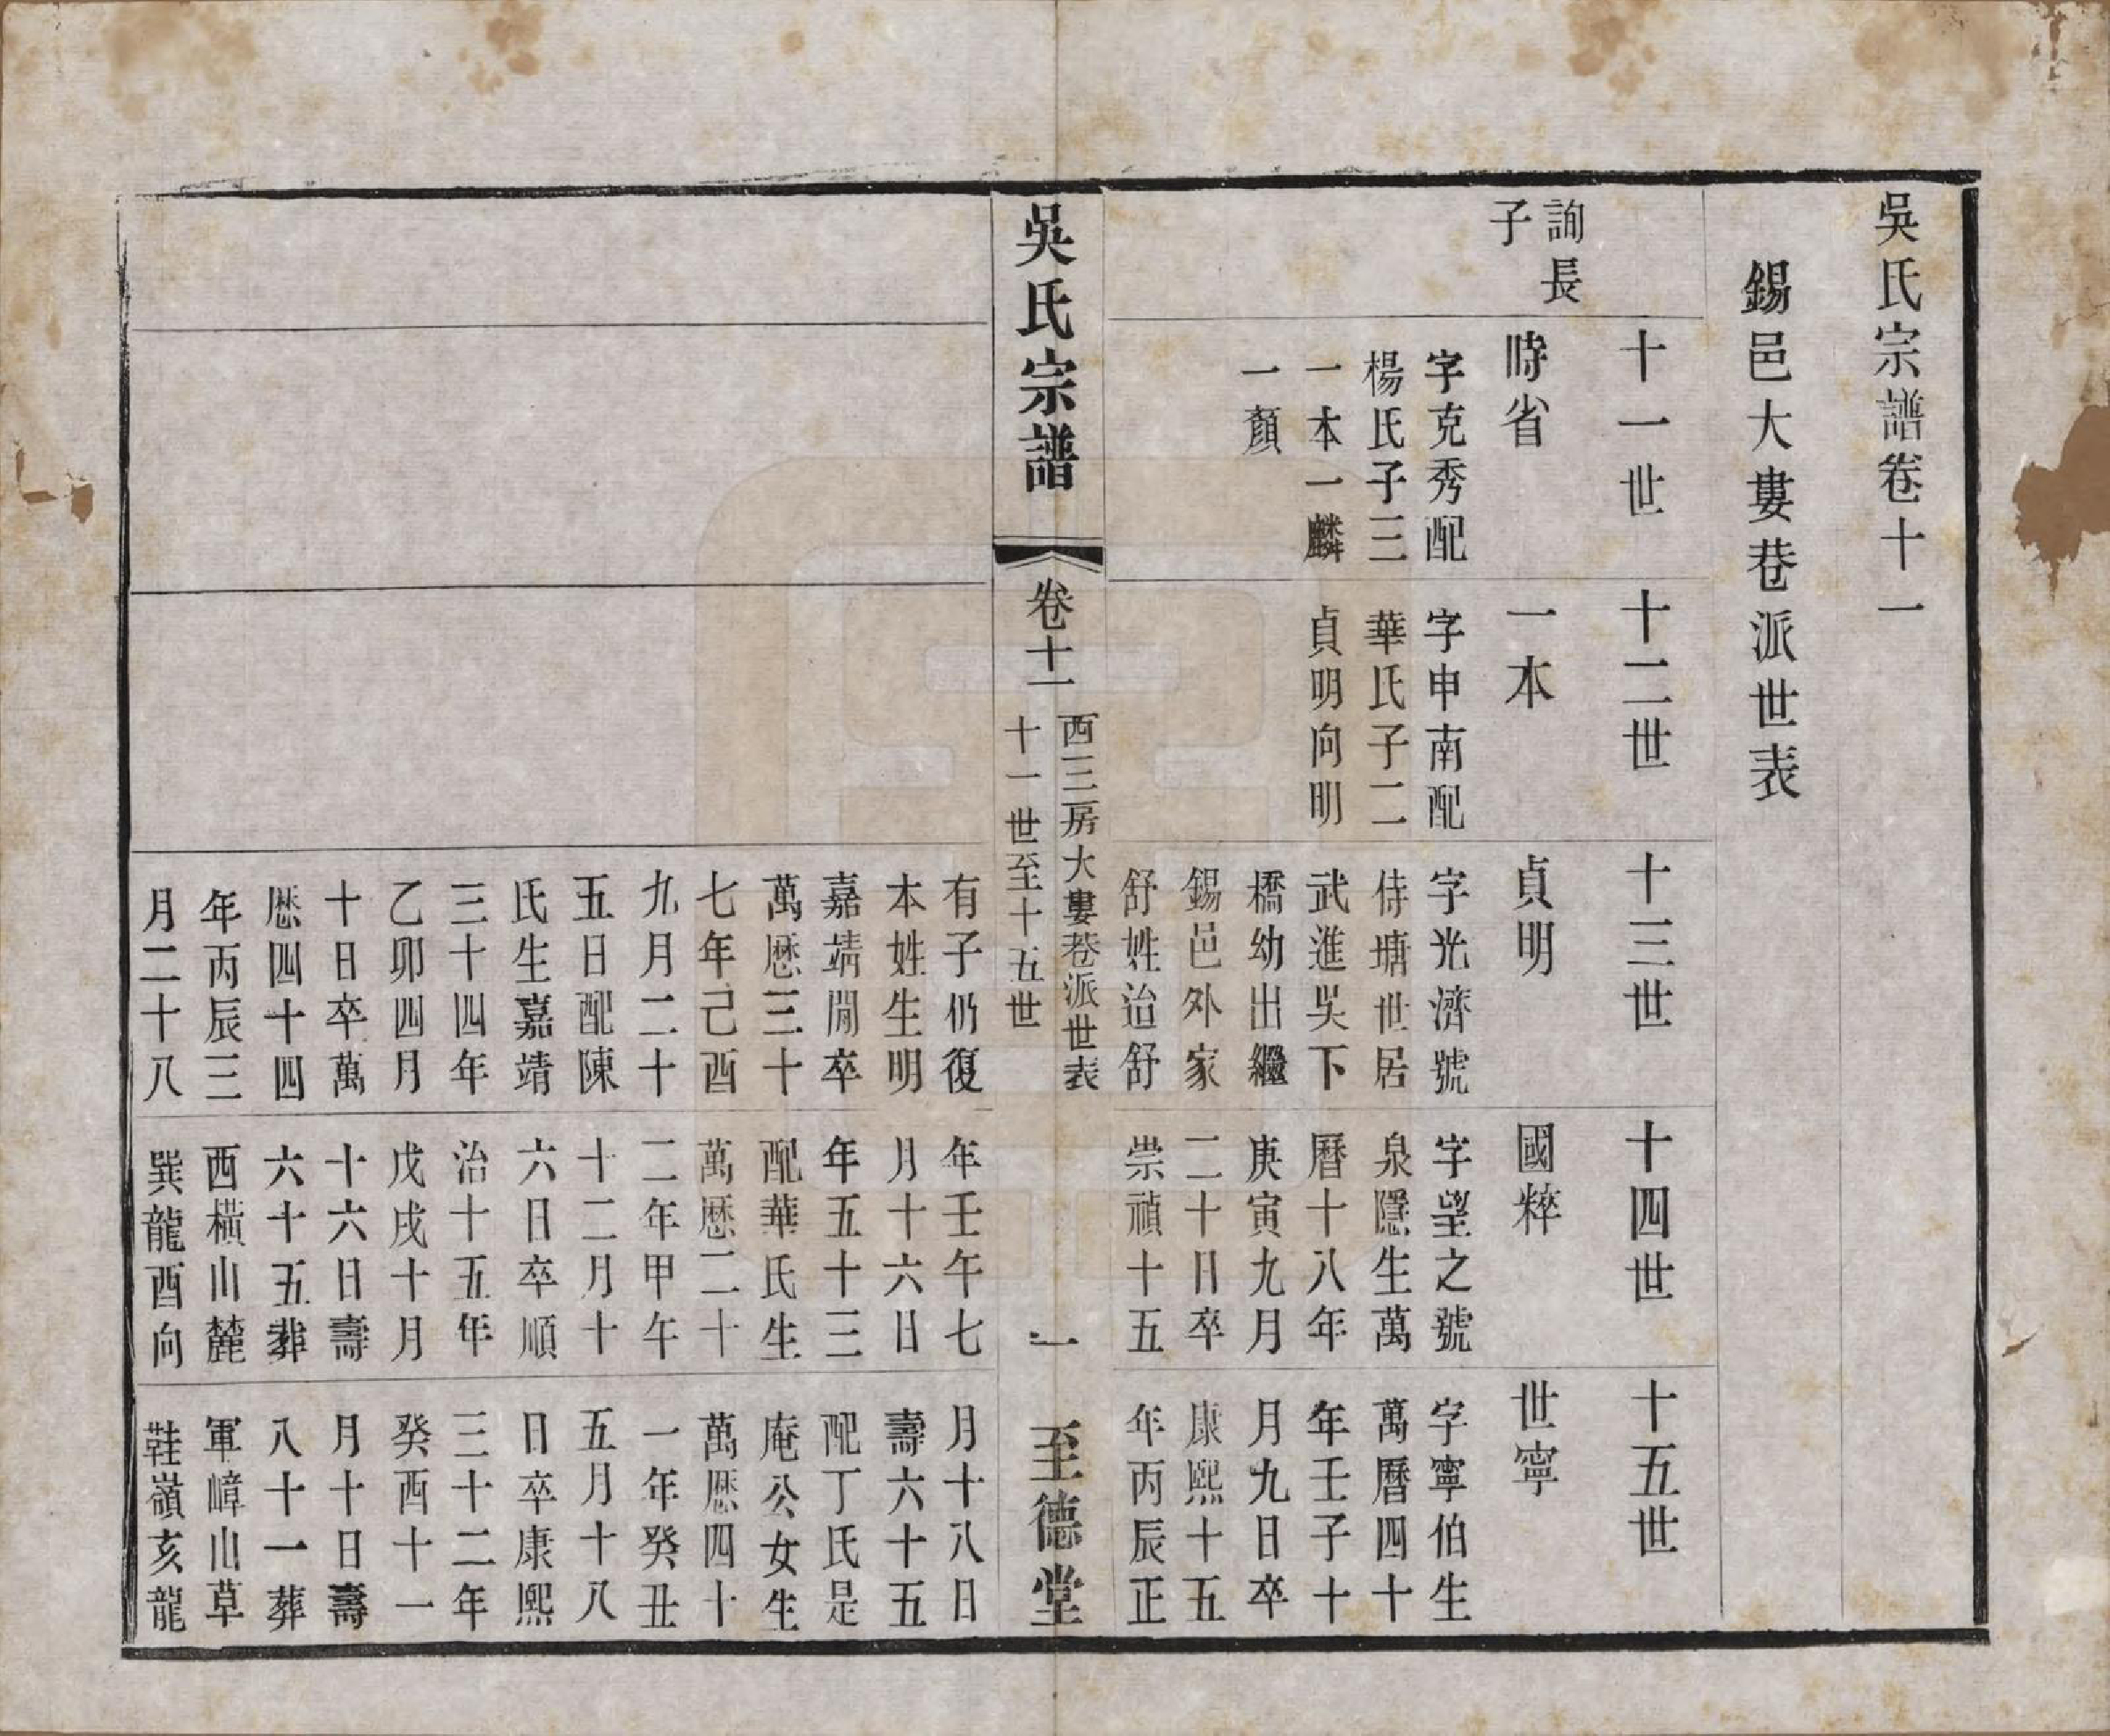 吳氏宗譜卷十一
錫邑大婁巷派世表
詢長
子
十一世
時省
字克秀配
楊氏子三
一本一麟
一顏
十二世
一本
字申南配
華氏子二
貞明向明
十三世
貞明
字光濟號
侍塘世居
武進吳下
橋幼出繼
錫邑外家
舒姓治舒
十四世
國粹
字望之號
泉隱生萬
曆十八年
庚寅九月
二十日卒
崇禎十五
十五世
世寧
字寧伯生
萬曆四十
年壬子十
月九日卒
康熙十五
年丙辰正
吳氏宗譜
卷十一
西三房大婁巷派世表
十一世至十五世
一
至德堂
有子仍復
本姓生明
嘉靖閒卒
萬厯三十
七年己酉
九月二十
五日配陳
氏生嘉靖
三十四年
乙卯四月
十日卒萬
厯四十四
年丙辰三
月二十八
年壬午七
月十六日
年五十三
配華氏生
萬厯二十
二年甲午
十二月十
六日卒順
治十五年
戊戌十月
十六日壽
六十五葬
西橫山麓
巽龍酉向
月十八日
壽六十五
配丁氏是
庵公女生
萬厯四十
一年癸丑
五月十八
日卒康熙
三十二年
癸酉十一
月十日壽
八十一葬
軍嶂山草
鞋嶺亥龍